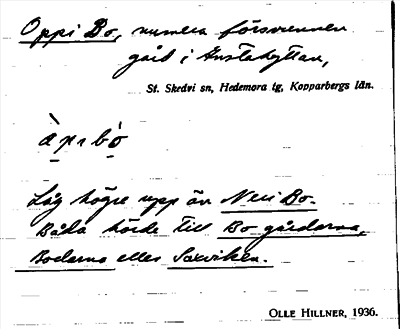 Oppi Bo, numera försvunnen
gård i Gustahyttan,
St. Skedvi sn, Hedemora tg, Kopparbergs län.
Låg högre upp än Neri Bo.
Båda hörde till Bo gårdarna,
Bodarna eller Saxviken.
OLLE HILLNER, 1936.